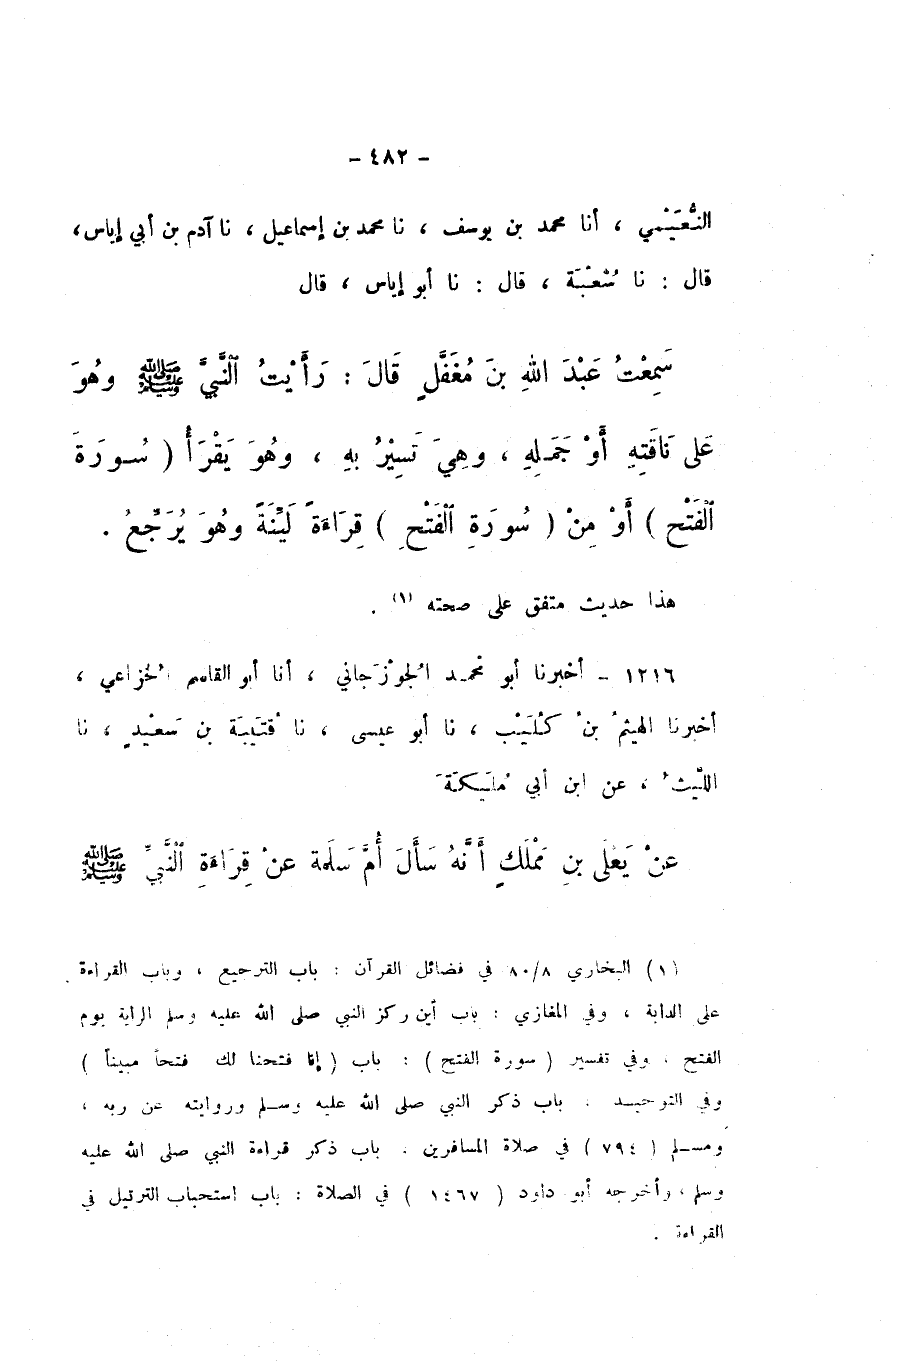 - ٤٨٢ -
النُّعَيْمي ، أنا محمد بن يوسف ، نا محمد بن إسماعيل ، نا آدم بن أبي إياس،
قال : نا شُعْبَة ، قال : نا أبو إياس ، قال
سَمِعْتُ عَبْدَ اللهِ بنَ مُغَفَّلٍ قَالَ : رَأَيْتُ ٱلنَّبيَّ ﷺ وهُوَ
عَلى نَاقَتِهِ أَوْ جَمَلِهِ ، وهِيَ تَسِيْرُ بهِ ، وهُوَ يَقْرَأُ ( سُورَةَ
ٱلفَتْحِ ) أَوْ مِنْ ( سُورَةِ ٱلفَتْحِ ) قِرَاءَةً لَيِّنَةً وهُوَ يُرَجِّعُ .
هذا حديث متفق على صحته (١) .
١٢١٦ - أخبرنا أبو محمد الجُوْزَجاني ، أنا أبو القاسم الخُزاعي ،
أخبرنا الهيثمُ بنُ كُلَيْب ، نا أبو عيسى ، نا قُتَيبَة بن سَعيْدٍ ، نا
اللَّيثُ ، عن ابن أبي مُلَيكَةَ
عَنْ يَعْلَى بنِ مَمْلَكٍ أَنَّهُ سَأَلَ أُمَّ سَلَمة عنْ قِرَاءَةِ ٱلنَّبيِّ ﷺ
(١) البخاري ٨٠/٨ في فضائل القرآن : باب الترجيع ، وباب القراءة
على الدابة ، وفي المغازي : باب أين ركز النبي صلى الله عليه وسلم الراية يوم
الفتح ، وفي تفسير ( سورة الفتح ) : باب ( إنا فتحنا لك فتحاً مبيناً )
وفي التوحيد : باب ذكر النبي صلى الله عليه وسلم وروايته عن ربه ،
ومسلم ( ٧٩٤ ) في صلاة المسافرين : باب ذكر قراءة النبي صلى الله عليه
وسلم ، وأخرجه أبو داود ( ١٤٦٧ ) في الصلاة : باب استحباب الترتيل في
القراءة .